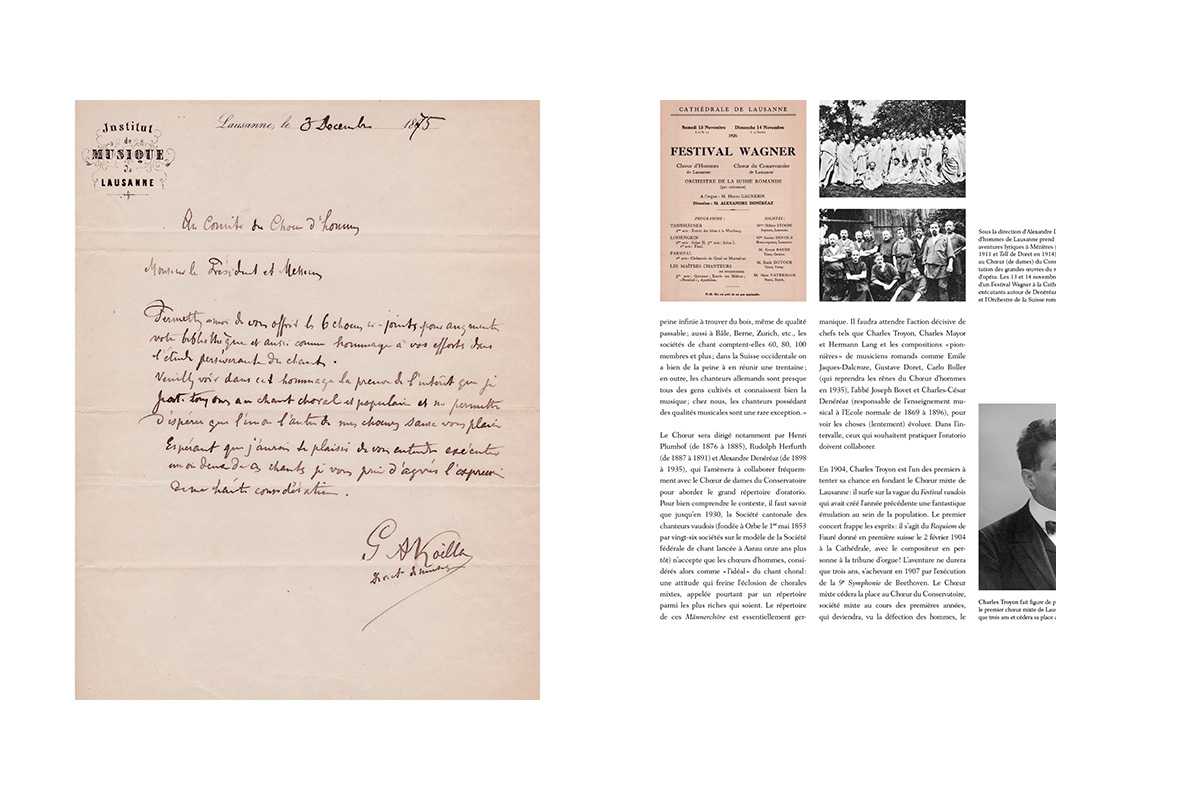 Institut
de
MUSIQUE
de
LAUSANNE
Lausanne, le 3 Decembre 1875
Au Comité du Choeur d'hommes
Monsieur le Président et Messieurs
Permettez-moi de vous offrir les 6 choeurs ci-joints pour augmenter
votre bibliothèque et aussi comme hommage à vos efforts dans
l'étude persévérante du chant.
Veuillez voir dans cet hommage la preuve de l'intérêt que je
porte toujours au chant choral et populaire et me permettre
d'espérer que l'un ou l'autre de mes choeurs saura vous plaire
Espérant que j'aurai le plaisir de vous entendre exécuter
un ou deux de ces chants je vous prie d'agréer l'expression
de ma haute considération.
G A Koëlla
Direct. de musique
CATHÉDRALE DE LAUSANNE
Samedi 13 Novembre Dimanche 14 Novembre
1926
FESTIVAL WAGNER
Chœur d'Hommes Chœur du Conservatoire
de Lausanne de Lausanne
ORCHESTRE DE LA SUISSE ROMANDE
A l'orgue : M. Henri GAGNEBIN
Direction : M. ALEXANDRE DENÉRÉAZ
PROGRAMME : SOLISTES :
TANNHÄUSER
LOHENGRIN
PARSIFAL
LES MAÎTRES CHANTEURS
Sous la direction d'Alexandre D
d'hommes de Lausanne prend
aventures lyriques à Mézières (
1911 et Tell de Doret en 1914)
au Chœur (de dames) du Cons
tation des grandes œuvres du r
d'opéra. Les 13 et 14 novembre
d'un Festival Wagner à la Cath
exécutants autour de Denéréaz
et l'Orchestre de la Suisse rom
peine infinie à trouver du bois, même de qualité
passable ; aussi à Bâle, Berne, Zurich, etc., les
sociétés de chant comptent-elles 60, 80, 100
membres et plus ; dans la Suisse occidentale on
a bien de la peine à en réunir une trentaine ;
en outre, les chanteurs allemands sont presque
tous des gens cultivés et connaissent bien la
musique ; chez nous, les chanteurs possédant
des qualités musicales sont une rare exception. »
Le Chœur sera dirigé notamment par Henri
Plumhof (de 1876 à 1885), Rudolph Herfurth
(de 1887 à 1891) et Alexandre Denéréaz (de 1898
à 1935), qui l'amènera à collaborer fréquem-
ment avec le Chœur de dames du Conservatoire
pour aborder le grand répertoire d'oratorio.
Pour bien comprendre le contexte, il faut savoir
que jusqu'en 1930, la Société cantonale des
chanteurs vaudois (fondée à Orbe le 1er mai 1853
par vingt-six sociétés sur le modèle de la Société
fédérale de chant lancée à Aarau onze ans plus
tôt) n'accepte que les chœurs d'hommes, consi-
dérés alors comme « l'idéal » du chant choral :
une attitude qui freine l'éclosion de chorales
mixtes, appelée pourtant par un répertoire
parmi les plus riches qui soient. Le répertoire
de ces Männerchöre est essentiellement ger-
manique. Il faudra attendre l'action décisive de
chefs tels que Charles Troyon, Charles Mayor
et Hermann Lang et les compositions « pion-
nières » de musiciens romands comme Emile
Jaques-Dalcroze, Gustave Doret, Carlo Boller
(qui reprendra les rênes du Chœur d'hommes
en 1935), l'abbé Joseph Bovet et Charles-César
Denéréaz (responsable de l'enseignement mu-
sical à l'Ecole normale de 1869 à 1896), pour
voir les choses (lentement) évoluer. Dans l'in-
tervalle, ceux qui souhaitent pratiquer l'oratorio
doivent collaborer.
En 1904, Charles Troyon est l'un des premiers à
tenter sa chance en fondant le Chœur mixte de
Lausanne : il surfe sur la vague du Festival vaudois
qui avait créé l'année précédente une fantastique
émulation au sein de la population. Le premier
concert frappe les esprits : il s'agit du Requiem de
Fauré donné en première suisse le 2 février 1904
à la Cathédrale, avec le compositeur en per-
sonne à la tribune d'orgue ! L'aventure ne durera
que trois ans, s'achevant en 1907 par l'exécution
de la 9e Symphonie de Beethoven. Le Chœur
mixte cédera la place au Chœur du Conservatoire,
société mixte au cours des premières années,
qui deviendra, vu la défection des hommes, le
Charles Troyon fait figure de p
le premier chœur mixte de Lau
que trois ans et cédera sa place a